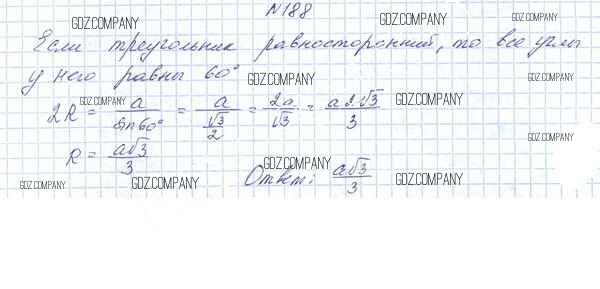 №188
GDZ.COMPANY GDZ.COMPANY GDZ.COMPANY
Если треугольник равносторонний, то все углы
у него равны 60°
GDZ.COMPANY GDZ.COMPANY
GDZ.COMPANY GDZ.COMPANY
2R = a/sin60° = a/(√3/2) = 2a/√3 = a2√3/3
GDZ.COMPANY
R = a√3/3
GDZ.COMPANY
Ответ: a√3/3
GDZ.COMPANY GDZ.COMPANY GDZ.COMPANY